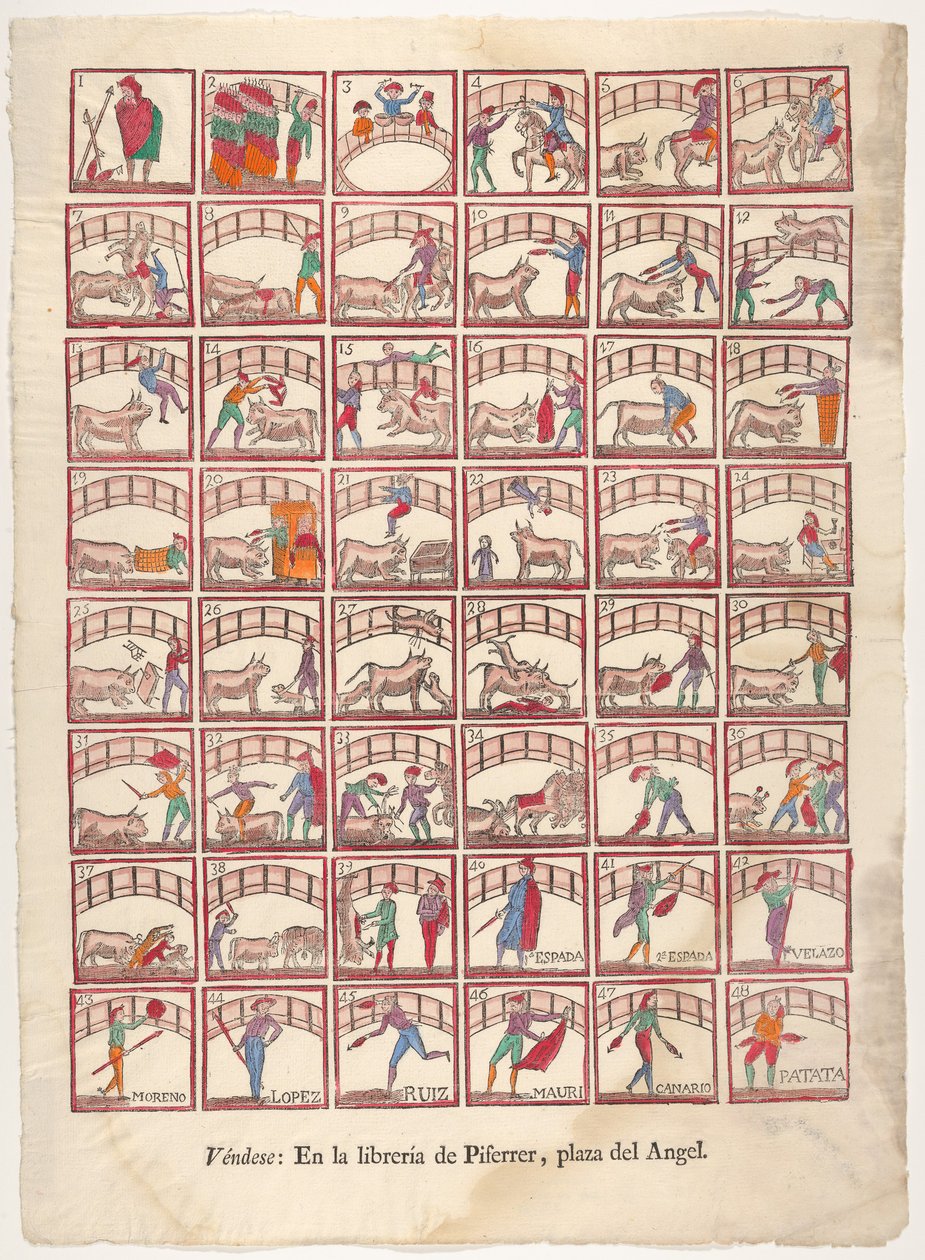 1 2 3 4 5 6
7 8 9 10 11 12
13 14 15 16 17 18
19 20 21 22 23 24
25 26 27 28 29 30
31 32 33 34 35 36
37 38 39 40 41 42
1ª ESPADA 2ª ESPADA VELAZO
43 44 45 46 47 48
MORENO LOPEZ RUIZ MAURI CANARIO PATATA
Véndese: En la librería de Piferrer, plaza del Angel.